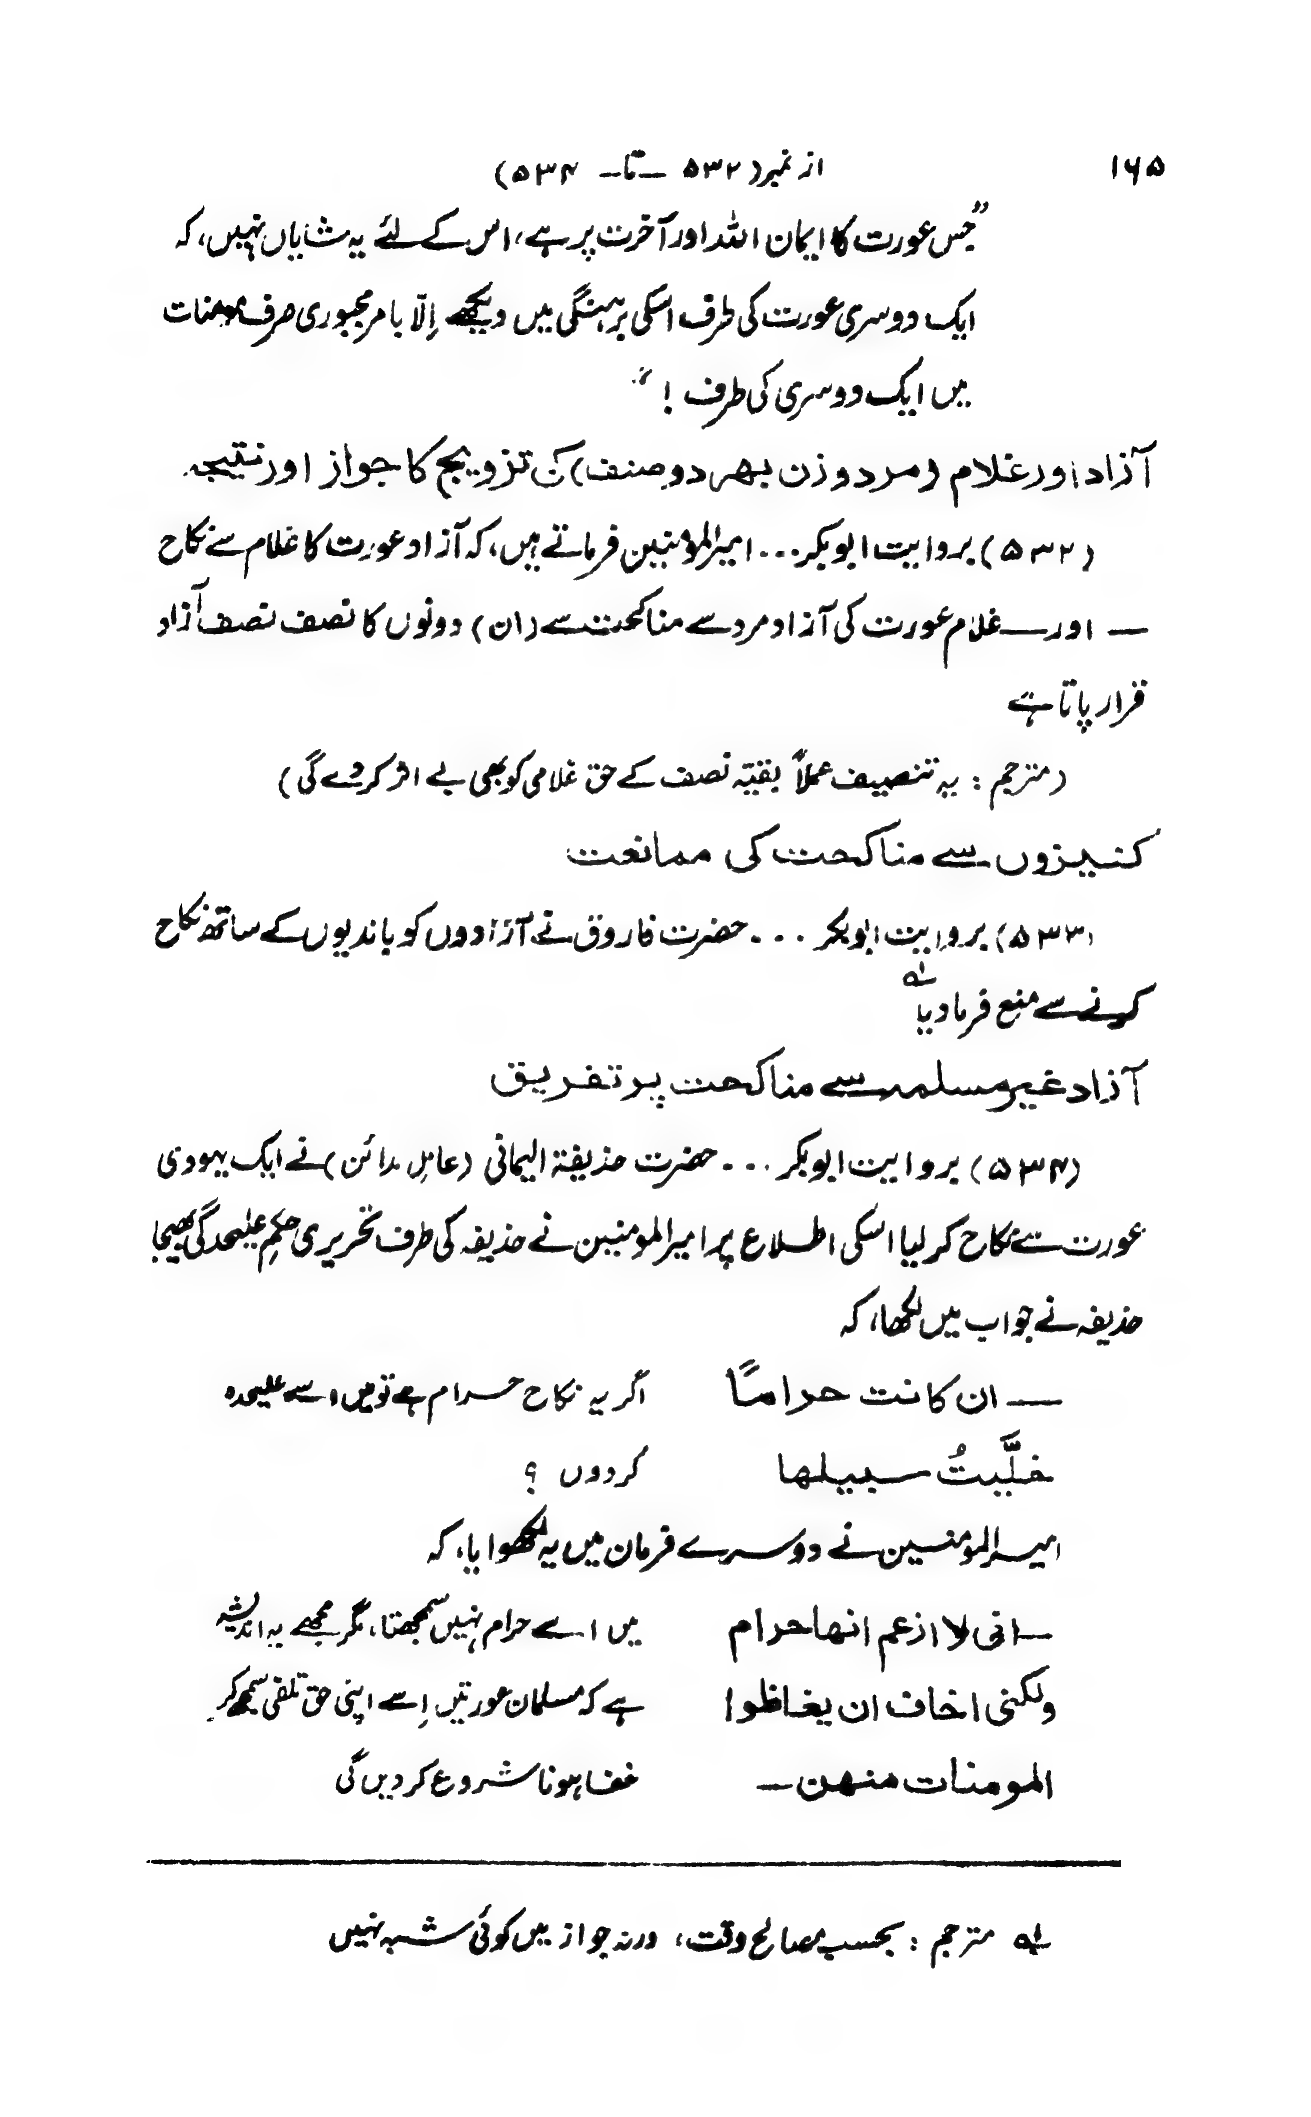 ۱۶۵
از نمبر (۵۳۲ – تا – ۵۳۴)
”جس عورت کا ایمان اللہ اور آخرت پر ہے، اس کے لئے یہ شایاں نہیں، کہ
ایک دوسری عورت کی طرف اسکی برہنگی میں دیکھے اِلّا با مر مجبوری صرف مومنات
میں ایک دوسری کی طرف !“
آزاد اور غلام (مرد و زن بہر دو صنف) کی تزویج کا جواز اور نتیجہ
(۵۳۲) بروایت ابوبکر ... امیرالمؤمنین فرماتے ہیں، کہ آزاد عورت کا غلام سے نکاح
— اور — غلام عورت کی آزاد مرد سے مناکحت سے (ان) دونوں کا نصف نصف آزاد
قرار پاتا ہے
(مترجم : یہ تنصیف عملاً بقیّہ نصف کے حق غلامی کو بھی بے اثر کر دے گی)
کنیزوں سے مناکحت کی ممانعت
(۵۳۳) بروایت ابوبکر ... حضرت فاروق نے آزادوں کو باندیوں کے ساتھ نکاح
کرنے سے منع فرما دیا ؎۱
آزاد غیر مسلمہ سے مناکحت پر تفریق
(۵۳۴) بروایت ابوبکر ... حضرت حذیفۃ الیمانی (عامل مدائن) نے ایک یہودی
عورت سے نکاح کر لیا اسکی اطلاع پر امیرالمومنین نے حذیفہ کی طرف تحریری حکمِ علیحدگی بھیجا
حذیفہ نے جواب میں لکھا، کہ
— ان کانت حراماً اگر یہ نکاح حرام ہے تو میں اسے علیحدہ
خلَّیتُ سبیلها کردوں ؟
امیرالمومنین نے دوسرے فرمان میں یہ لکھوایا، کہ
— انی لا ازعم انها حرام میں اسے حرام نہیں سمجھتا، مگر مجھے یہ اندیشہ
ولکنی اخاف ان یغاظوا ہے کہ مسلمان عورتیں اِسے اپنی حق تلفی سمجھ کر
المومنات منهن — خفا ہونا شروع کر دیں گی
؎۱ مترجم : بحسب مصالح وقت، ورنہ جواز میں کوئی شبہ نہیں